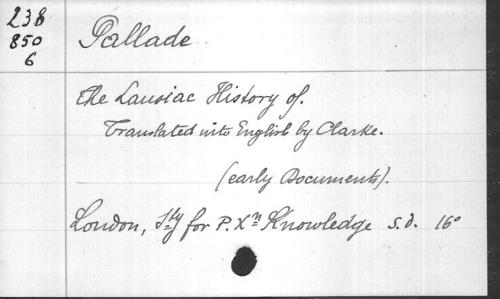 238
850
6
Pallade
the Lausiac History of.
Translated into English by Clarke.
(early Documents).
London, Sty for P. Xn Knowledge s.d. 16°